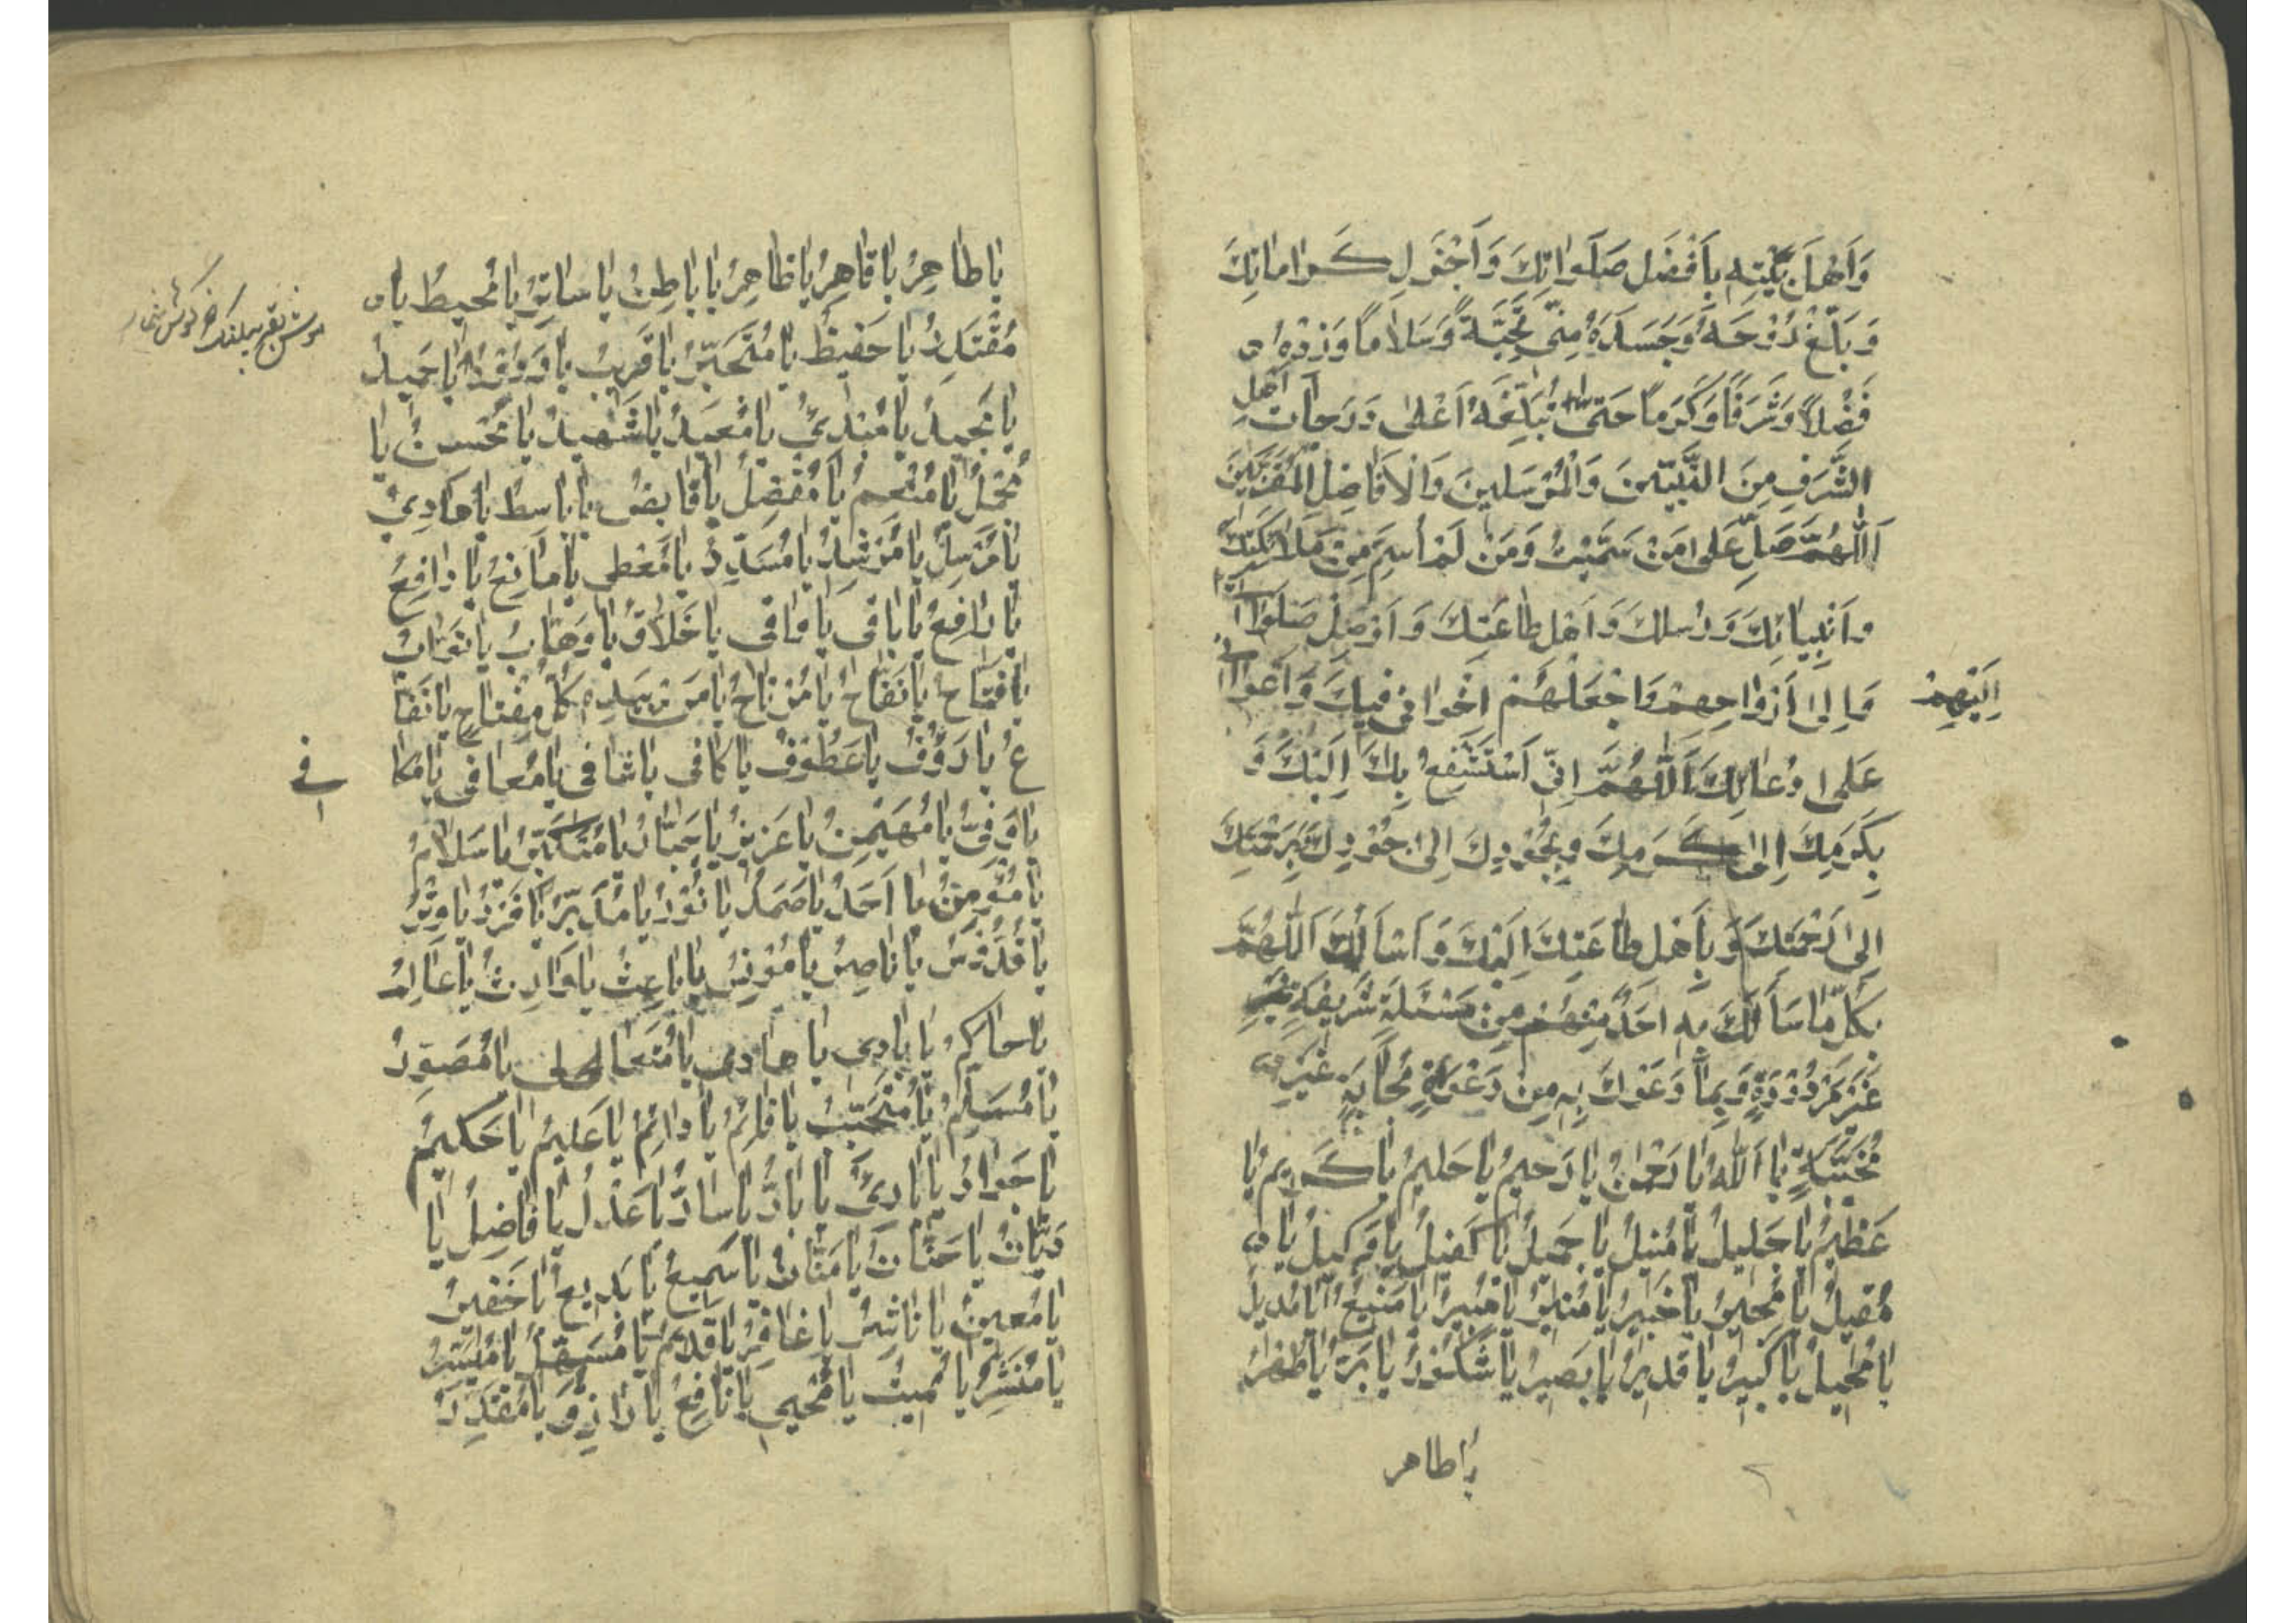 وَاَهْلَ بَيْتِهِ بِاَفْضَلِ صَلَوَاتِكَ وَاَجْزَلِ كَرامَاتِكَ
وَبَلِّغْ رُوْحَهُ وَجَسَدَهُ مِنّى تَحِيَّةً وَسَلَاماً وَزِدْهُ
فَضْلاً وَشَرَفًا وَكَرَماً حَتّى تُبَلِّغَهُ اَعْلى دَرَجاتِ اَهْلِ
الشَّرَفِ مِنَ النَّبيّينَ وَالْمُرْسَلينَ وَالْاَفَاضِلِ الْمُقَرَّبينَ
اَللّهُمَّ صَلِّ عَلى مَنْ سَمَّيْتُ وَمَنْ لَمْ اُسَمِّ مِنْ مَلائِكَتِكَ
وَاَنْبِيَائِكَ وَرُسُلِكَ وَاَهْلِ طَاعَتِكَ وَاَوْصِلْ صَلَوَاتى
اِلَيْهِمْ
وَاِلى اَرْوَاحِهِمْ وَاجْعَلْهُمْ اِخْوَانى فيكَ وَاَعْوَانى
عَلى دُعَائِكَ اَللّهُمَّ اِنّى اَسْتَشْفِعُ بِكَ اِلَيْكَ وَ
بِكَرَمِكَ اِلى كَرَمِكَ وَبِجُوْدِكَ اِلى جُوْدِكَ بِرَحْمَتِكَ
اِلى رَحْمَتِكَ وَبِاَهْلِ طَاعَتِكَ اِلَيْكَ وَاَسْاَلُكَ اَللّهُمَّ
بِكُلِّ مَا سَاَلَكَ بِهِ اَحَدٌ مِنْهُمْ مِنْ مَسْئَلَةٍ شَرِيفَةٍ
غَيْرِ مَرْدُوْدَةٍ وَبِمَا دَعَوْكَ بِهِ مِنْ دَعْوَةٍ مُجَابَةٍ غَيْرِ
مُخَيَّبَةٍ يَا اَللّهُ يَا رَحْمنُ يَا رَحيمُ يَا حَليمُ يَا كَريمُ يَا
عَظيمُ يَا جَليلُ يَا مُنيلُ يَا جَميلُ يَا كَفيلُ يَا وَكيلُ يَا
مُقيلُ يَا مُجيرُ يَا خَبيرُ يَا مُنيرُ يَا مُبيرُ يَا مَنيعُ يَا مُديلُ
يَا مُحيلُ يَا كَبيرُ يَا قَديرُ يَا بَصيرُ يَا شَكُوْرُ يَا بَرُّ يَا طُهْرُ
يا طاهر
يَا طَاهِرُ يَا قَاهِرُ يَا ظَاهِرُ يَا بَاطِنُ يَا سَاتِرُ يَا مُحيطُ يَا
مُقْتَدِرُ يَا حَفيظُ يَا مُتَجَبِّرُ يَا قَريبُ يَا وَدُوْدُ يَا حَميدُ
يَا مَجيدُ يَا مُبْدِئُ يَا مُعيدُ يَا شَهيدُ يَا مُحْسِنُ يَا
مُجْمِلُ يَا مُنْعِمُ يَا مُفْضِلُ يَا قَابِضُ يَا بَاسِطُ يَا هَادِيْ
يَا مُرْسِلُ يَا مُرْشِدُ يَا مُسَدِّدُ يَا مُعْطى يَا مَانِعُ يَا دَافِعُ
يَا رَافِعُ يَا بَاقى يَا وَاقى يَا خَلاَّقُ يَا وَهَّابُ يَا تَوَّابُ
يَا فَتَّاحُ يَا نَفَّاحُ يَا مُرْتَاحُ يَا مَنْ بِيَدِهِ كُلُّ مِفْتَاحٍ يَا نَفَّا
عُ يَا رَؤُفُ يَا عَطُوْفُ يَا كَافى يَا شَافى يَا مُعَافى يَا مُكَا
فى
يَا وَفِىُّ يَا مُهَيْمِنُ يَا عَزيزُ يَا جَبَّارُ يَا مُتَكَبِّرُ يَا سَلَامُ
يَا مُؤْمِنُ يَا اَحَدُ يَا صَمَدُ يَا نُوْرُ يَا مُدَبِّرُ يَا فَرْدُ يَا وِتْرُ
يَا قُدُّوْسُ يَا نَاصِرُ يَا مُوْنِسُ يَا بَاعِثُ يَا وَارِثُ يَا عَالِمُ
يَا حَاكِمُ يَا بَادى يَا هَادى يَا مُتَعَالى يَا مُصَوِّرُ
يَا مُسَلِّمُ يَا مُتَحَبِّبُ يَا قَائِمُ يَا دَائِمُ يَا عَليمُ يَا حَكيمُ
يَا جَوَادُ يَا بَارِئُ يَا بَارُّ يَا سَارُّ يَا عَدْلُ يَا فَاضِلُ يَا
دَيَّانُ يَا حَنَّانُ يَا مَنَّانُ يَا سَميعُ يَا بَديعُ يَا خَفيرُ
يَا مُعينُ يَا نَاشِرُ يَا غَافِرُ يَا قَديمُ يَا مُسَهِّلُ يَا مُيَسِّرُ
يَا مُنْشِرُ يَا مُميتُ يَا مُحْيى يَا نَافِعُ يَا رَازِقُ يَا مُقْتَدِرُ